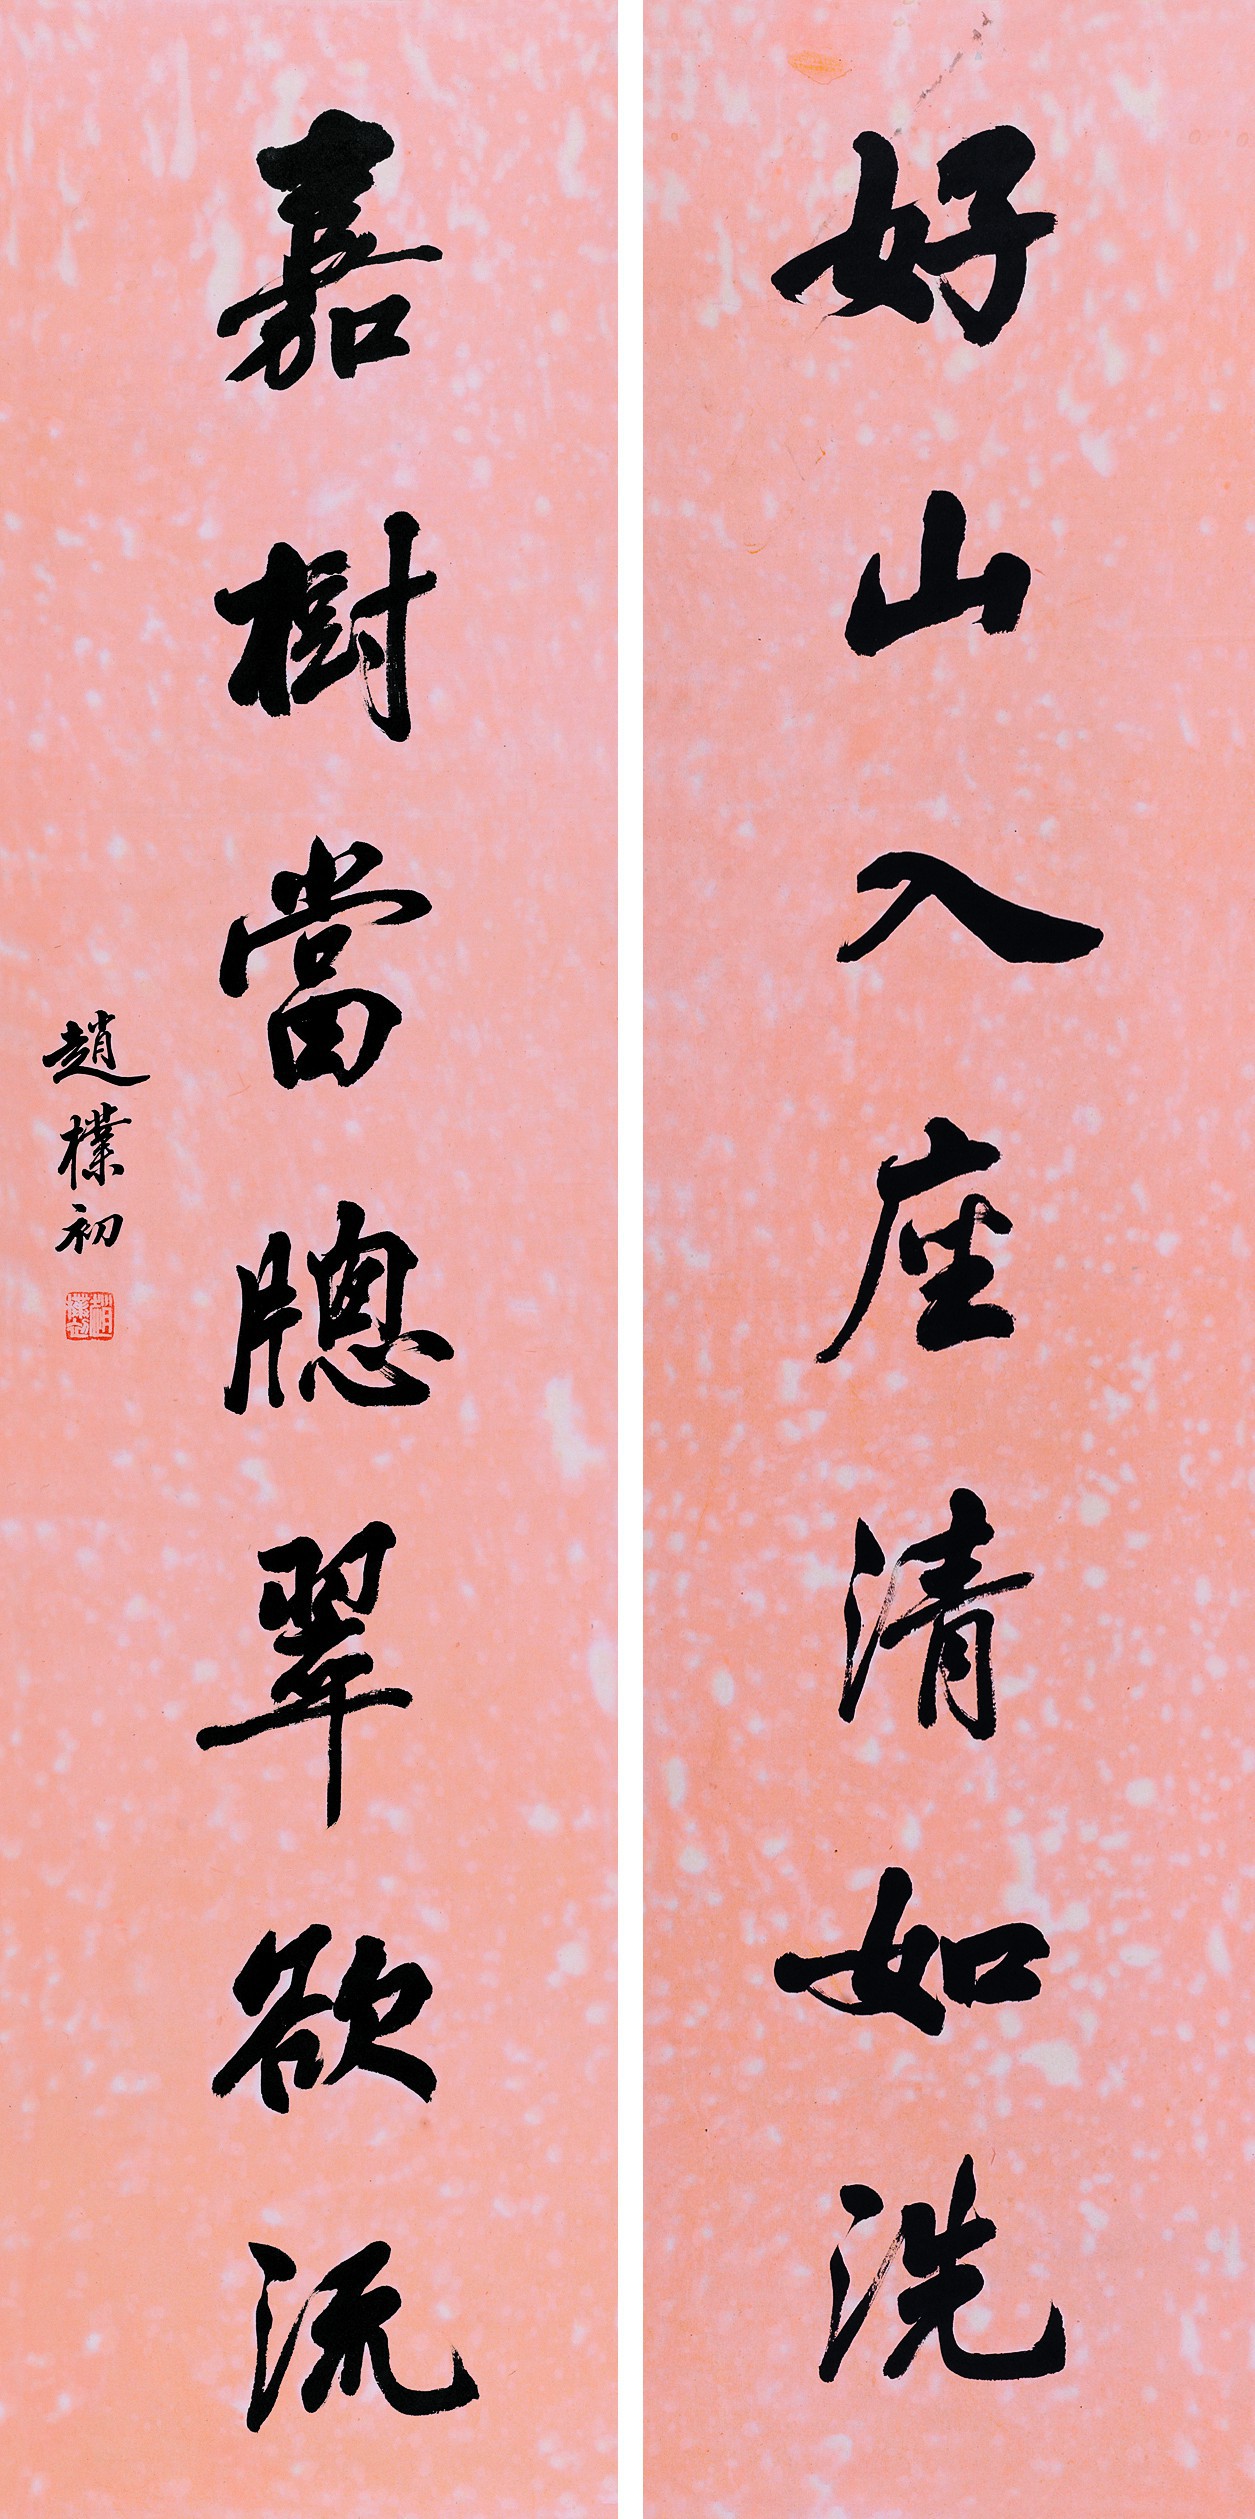 好山入座清如洗
嘉樹當牕翠欲流
趙樸初
趙樸初